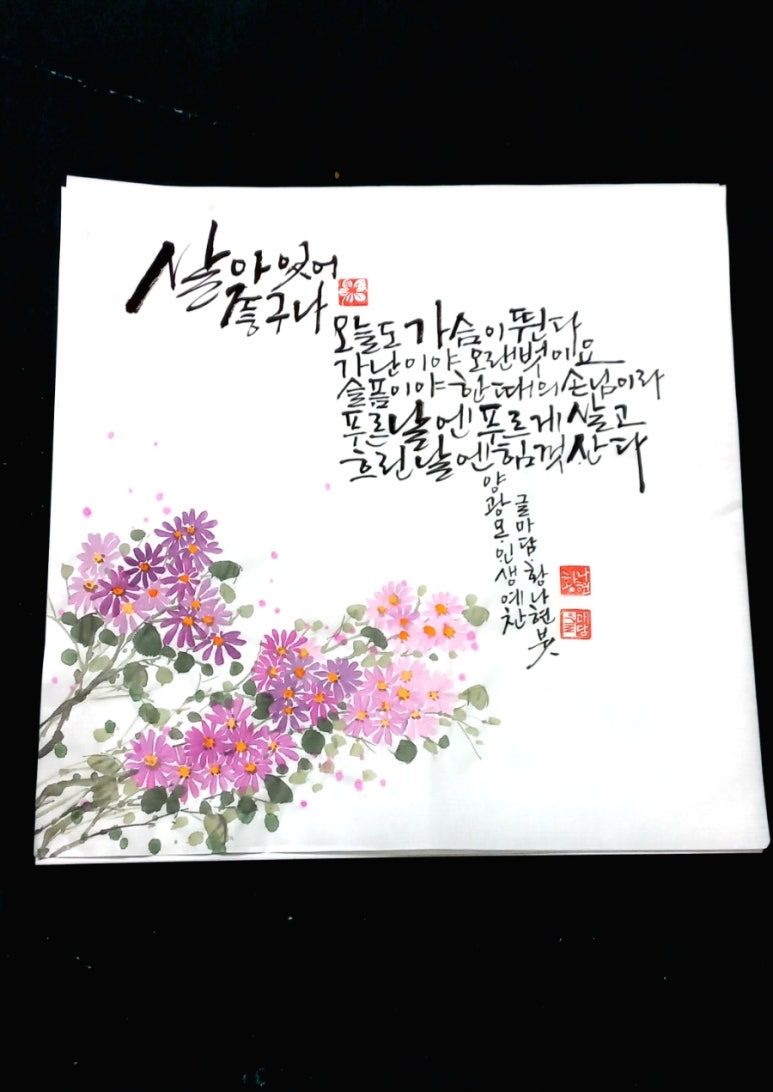 살아있어
좋구나
오늘도 가슴이 뛴다
가난이야 오랜 벗이요
슬픔이야 한때의 손님이라
푸른 날엔 푸르게 살고
흐린 날엔 힘껏 산다
양광모 인생예찬
글마담 황나현 붓